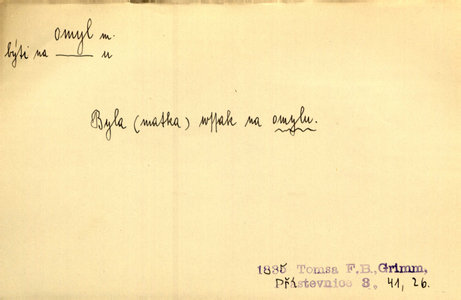 omyl m.
býti na ——— u
Byla (matka) wssak na omylu.
1835 Tomsa F.B., Grimm,
Přástevnice 3, 41, 26.